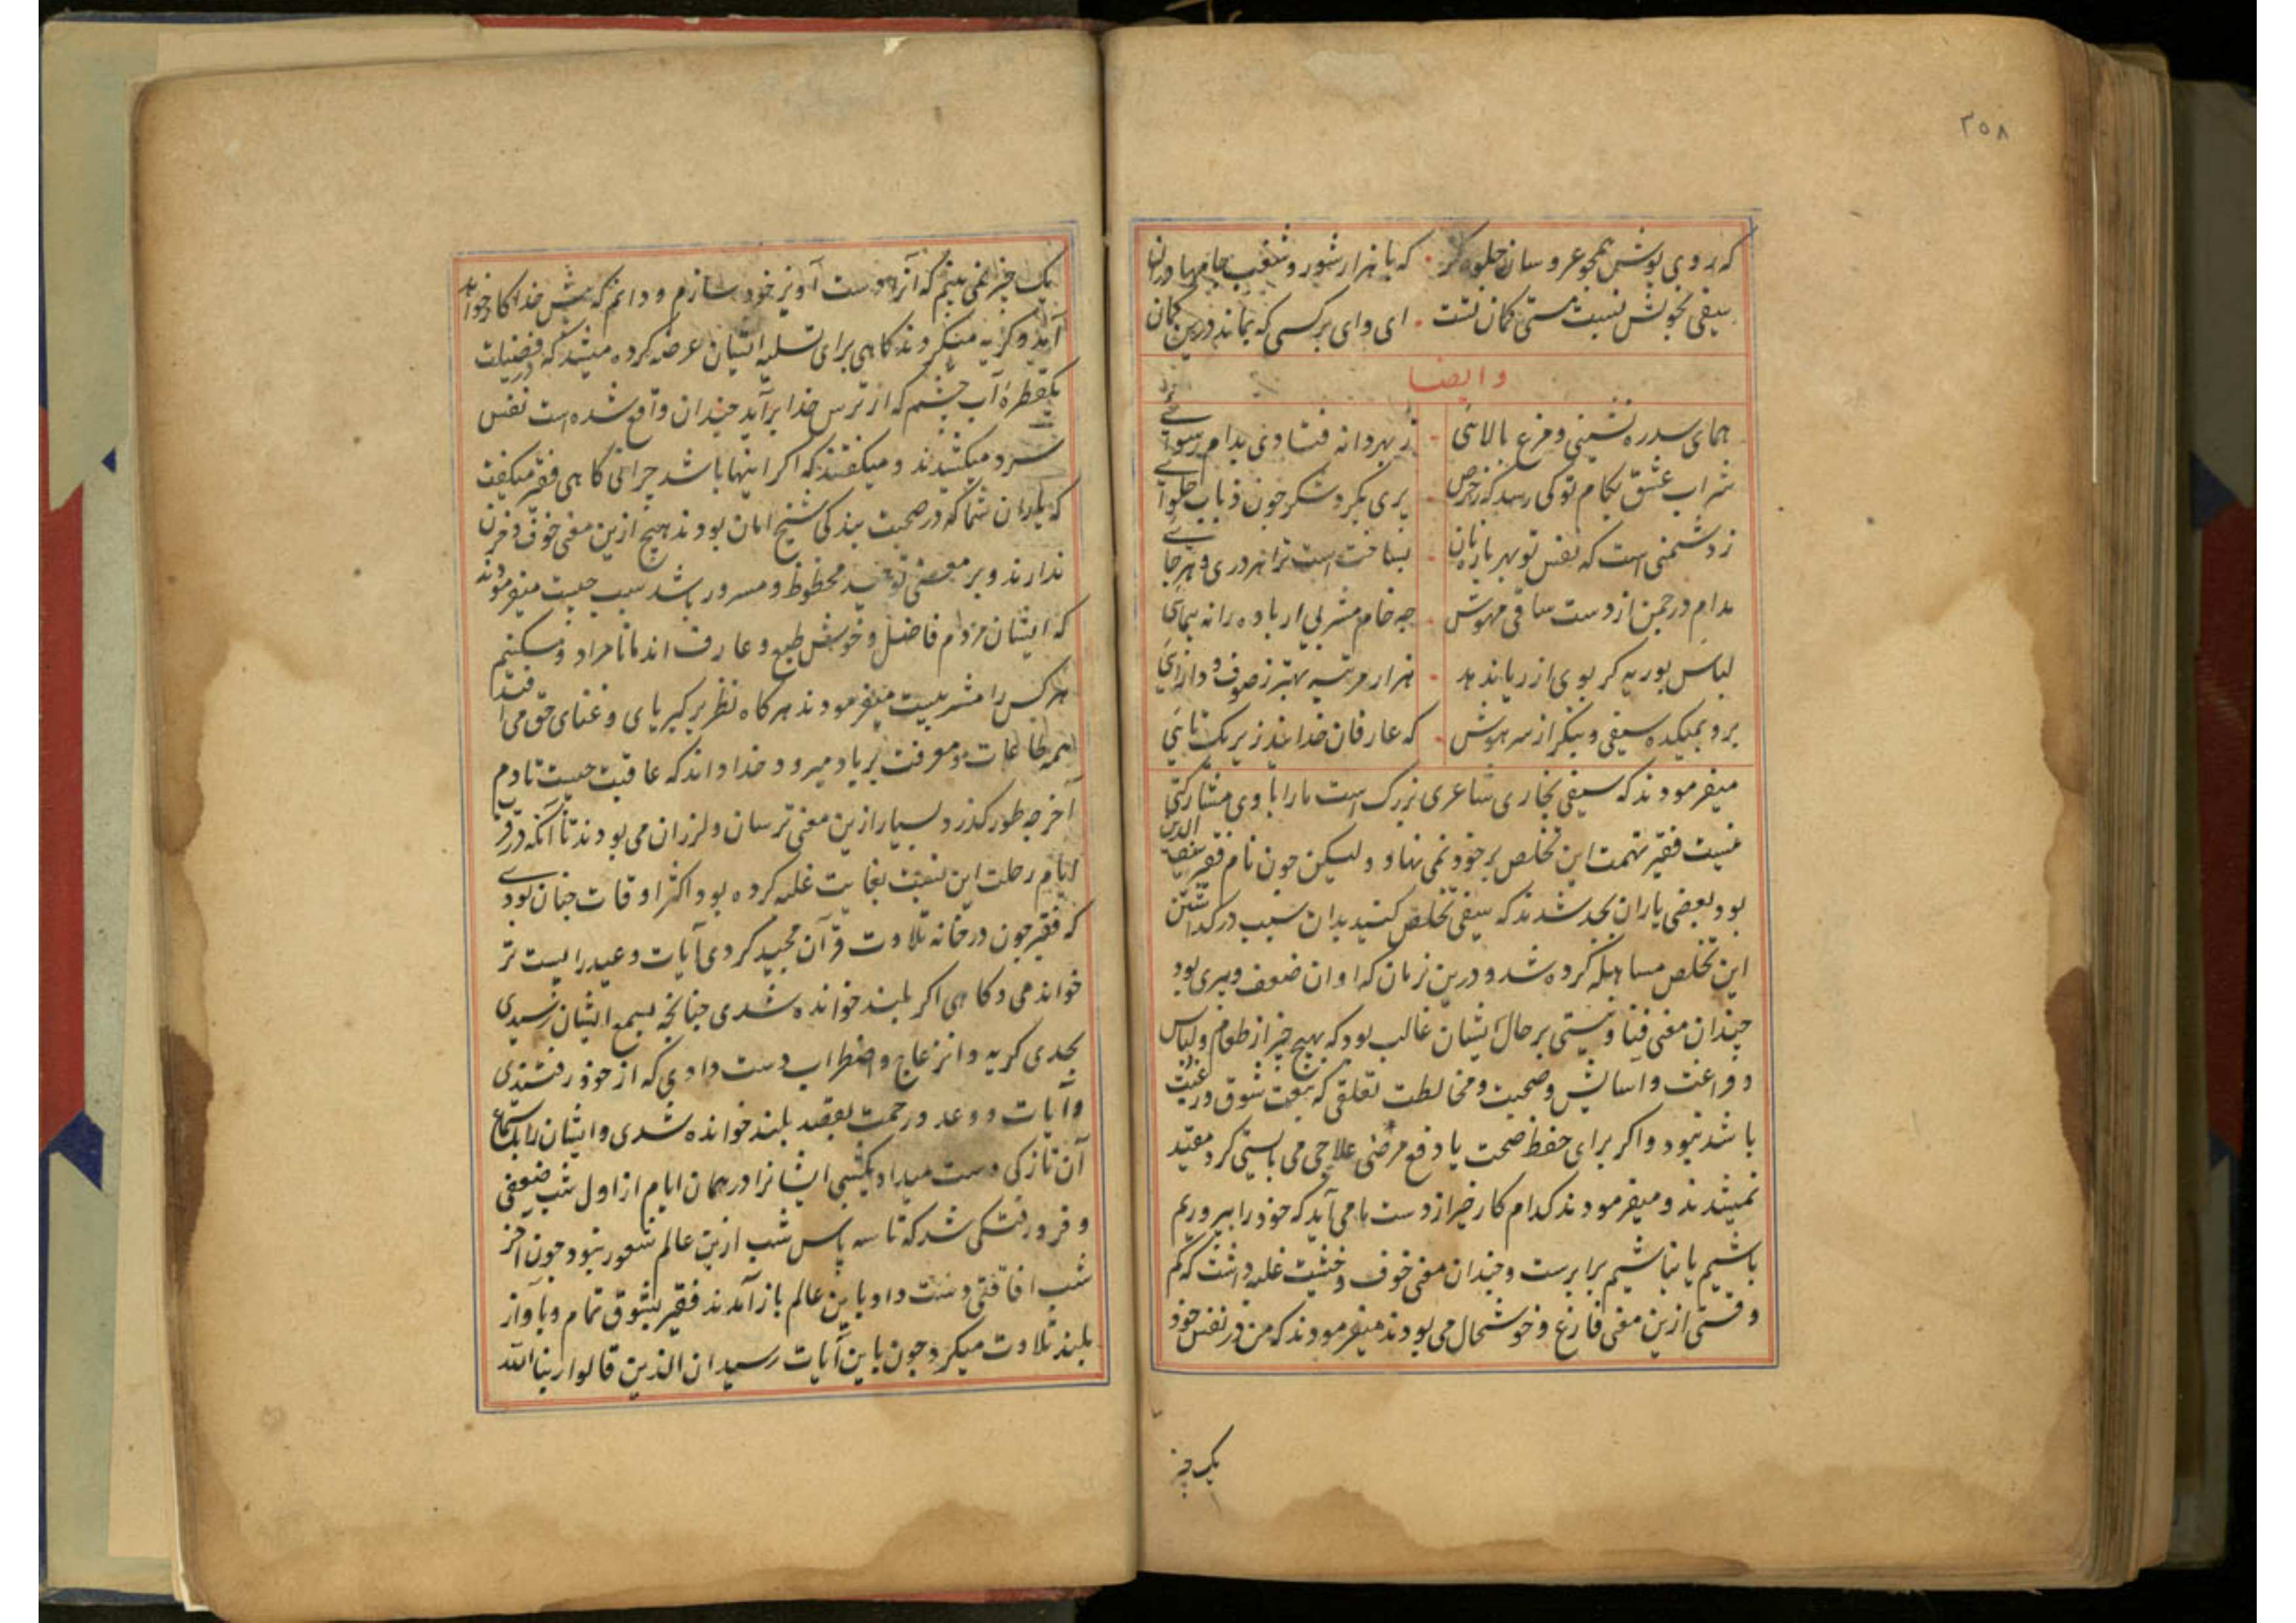 ۳۵۸
که روی پوش همچو عروسان جلوه گر که با هزار شور و شغب جامها دران
سیفی بخویش نسبت مستی کمان تست ای وای بر کسی که بماند درین کمان
وایضا
همای سدره نشینی و مرغ بالائی ز بهر دانه فتادی بدام رسوائے
شراب عشق بکام تو کی رسد که ز حرص پری بکرد شکر چون ذباب حلوائے
ز دشمنی است که نفس تو بهر پاره نان بساخت است ترا هر دری و هر جائے
مدام در چمن از دست ساقی مهوش چه خام مشربی ار باده را نه پیمائی
لباس بوریه کر بوی از ریا ندهد هزار مرتبه بهتر ز صوف و دارائی
برو بمیکده سیفی و بنکر از سر هوش که عارفان خدایند زیر یکتائی
میفرمودند که سیفی بخاری شاعری بزرک است ما را با وی مشارکتی
نیست فقیر تهمت این تخلص بر خود نمی نهاد ولیکن چون نام فقیر سیف الدین
بود بعضی یاران بجد شدند که سیفی تخلص کنید بدان سبب در کذاشتن
این تخلص مساهله کرده شد و درین زمان که اوان ضعف و پیری بود
چندان معنی فنا و نیستی بر حال ایشان غالب بود که بهیچ چیز از طعام و لباس
و فراغت و آسایش و صحبت و مخالطت تعلقی که بنعت شوق و رغبت
باشد نبود و اکر برای حفظ صحت یا دفع مرضی علاجی می بایستی کرد مقید
نمیشدند و میفرمودند کدام کار خیر از دست ما می آید که خود را بپروریم
باشیم یا نباشیم برابرست و چندان معنی خوف و خشیت غلبه داشت که کم
وقتی ازین معنی فارغ و خوشحال می بودند میفرمودند که من در نفس خود
یک چیز
یک چیز نمی بینم که آنرا دست آویز خود سازم و دانم که پیش خدا بکار خواهد
آمد و کریه میکردند کاهی برای تسلیه ایشان عرضه کرده میشد که در فضیلت
یکقطرۀ آب چشم که از ترس خدا برآید چندان واقع شده است نفس
سرد میکشیدند و میکفتند که اکر اینها باشد چرائی کاهی فقیر میکفت
که یاران شما که در صحبت بندکی شیخ امان بودند هیچ ازین معنی خوف و حزن
ندارند و بر معنی توحید محظوظ و مسرور باشد سبب چیست میفرمودند
که ایشان مردم فاضل و خوش طبع و عارف اند ما نامراد و مسکینیم
هر کس را مشربیست میفرمودند هر کاه نظر بر کبریای و غنای حق می افتد
همه طاعات و معرفت بر باد میرود و خدا داند که عاقبت چیست تا دم
آخر چه طور کذرد بسیار ازین معنی ترسان و لرزان می بودند تا آنکه در قرب
ایام رحلت این نسبت بغایت غلبه کرده بود اکثر اوقات چنان بودے
که فقیر چون در خانه تلاوت قرآن مجید کردی آیات وعید را پست تر
خواندمی و کاهی اکر بلند خوانده شدی چنانچه بسمع ایشان رسیدی
بحدی کریه و انزعاج و اضطراب دست دادی که از خود رفتندی
و آیات وعد و رحمت بقصد بلند خوانده شدی و ایشان را باستماع
آن تازکی دست میداد یکشبی ایشانرا در همان ایام از اول شب ضعفی
و فرو رفتکی شد که تا سه پاس شب ازین عالم شعور نبود چون آخر
شب افاقتی دست داد و باین عالم باز آمدند فقیر بشوق تمام و بآواز
بلند تلاوت میکرد چون باین آیات رسید ان الذین قالوا ربنا الله